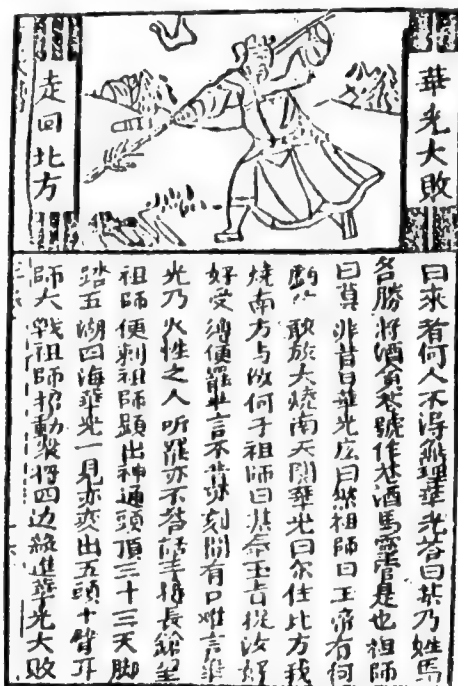 華光大敗
走回北方
曰來者何人不得無理華光答曰某乃姓馬
名勝將酒為號作花酒馬靈官是也祖師
曰莫非昔日華光広曰然祖師曰玉帝有何
虧汝敢放火燒南天関華光曰尔住北方我
燒南方与你何干祖師曰我奉玉旨捉汝好
好受縛便罷言不肯刻間有口难言華
光乃火性之人听罷亦不答話手将長鎗望
祖師便刺祖師顕出神通頭頂三十三天脚
踏五湖四海華光一見亦変出五頭十臂耳
師大戰祖師招動衆將四边殺進華光大敗